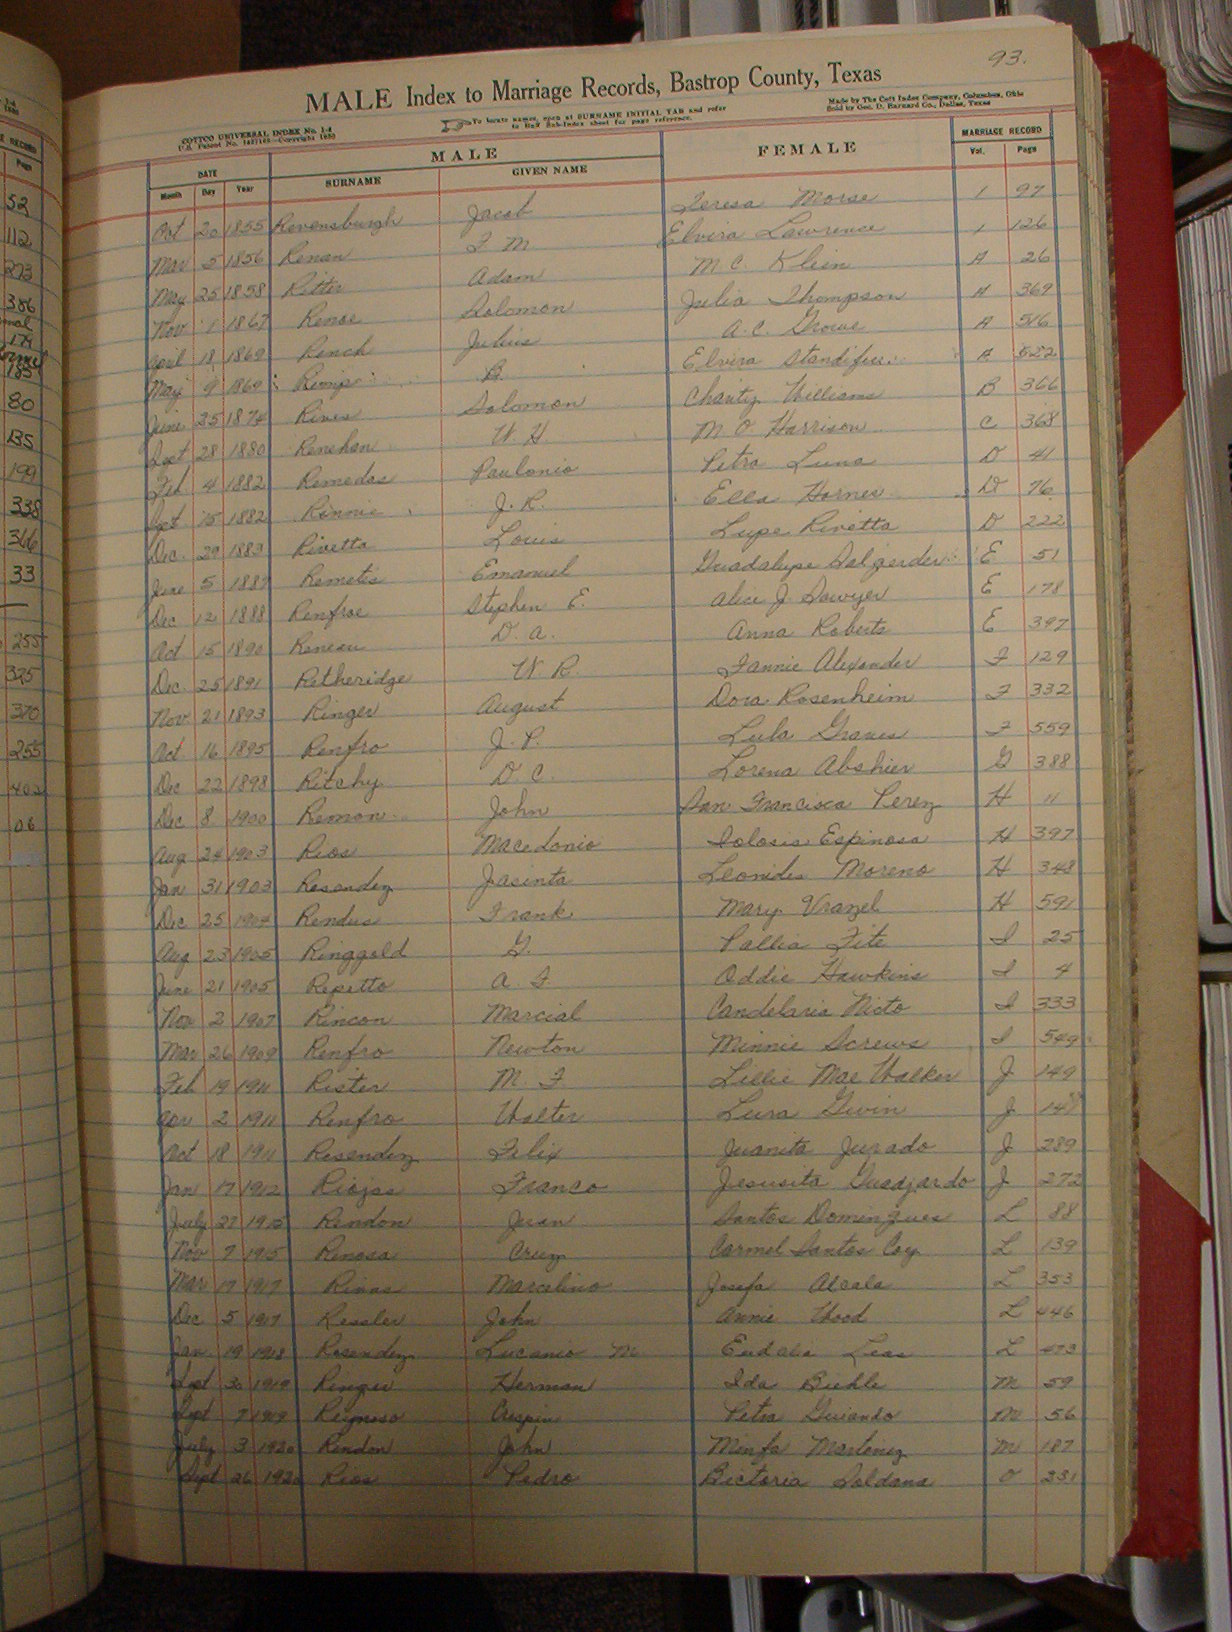 93.
MALE Index to Marriage Records, Bastrop County, Texas
COTTCO UNIVERSAL INDEX No. 1-4
U.S. Patent No. Copyright 1930
To locate names, open at SURNAME INITIAL TAB and refer
to Half Sub-Index sheet for page reference.
Made by The Cott Index Company, Columbus, Ohio
Sold by Geo. D. Barnard Co., Dallas, Texas
DATE MALE FEMALE MARRIAGE RECORD
Month Day Year SURNAME GIVEN NAME Vol. Page
Oct 20 1855 Revensburgh Jacob Teresa Morse 1 97
Mar 5 1856 Renan F M Elvira Lawrence 1 126
May 25 1858 Ritter Adam M C. Klein A 26
Nov 1 1867 Renoe Solomon Julia Thompson A 369
April 18 1869 Rench Julius A. C. Growe A 516
May 9 1869 Remip B. Elvira Standifer A 522
June 25 1874 Rives Solomon Charity Williams B 366
Sept 28 1880 Renehan W H. M O Harrison C 368
Feb 4 1882 Remedas Paulonio Petra Luna D 41
Sept 15 1882 Rennie J. R. Ella Horner D 76
Dec. 29 1883 Rivetta Louis Lupe Rivetta D 222
June 5 1887 Remetes Emanuel Guadalupe E 51
Dec 12 1888 Renfroe Stephen E. Alice J Sawyer E 178
Oct 15 1890 Reneau D. A. Anna Roberts E 397
Dec. 25 1891 Retheridge W R. Fannie Alexander F 129
Nov 21 1893 Ringer August Dora Rosenheim F 332
Oct. 16 1895 Renfro J. P. Lula Graves F 559
Dec 22 1898 Ritchy D C. Lorena Abshier G 388
Dec 8 1900 Remon John San Francisca Perez H 11
Aug 24 1903 Rios Macedonio Espinosa H 397
Jan 31 1903 Resendez Jasinta Leonides Moreno H 348
Dec 25 1904 Rendus Frank Mary Vrazel H 591
Aug 23 1905 Ringgold G. Pallia Fite I 25
June 21 1905 Repetto A F Oddie Hawkins I 4
Nov 2 1907 Rincon Marcial Candelaria Nieto I 333
Mar 26 1909 Renfro Newton Minnie Screws I 549
Feb 19 1911 Rister M F Lillie Mae Walker J 149
2 1911 Renfro Walter Lura Gwin J
Oct 18 1911 Resendez Felix Juanita Jurado J 289
Jan 17 1912 Riojas Franco Jesusita Guajardo J 272
July 27 1915 Rendon Juan Santos Domingues L 88
Nov 7 1915 Renosa Cruz Carmel Santos Coy L 139
Mar 17 1917 Rivas Marcelino Josefa Alcala L 353
Dec 5 1917 Ressler John Annie Wood L 446
Jan 19 1918 Rosendez Lucanio M Eudalia Leas L 473
Sept 30 1919 Ringer Herman Ida Biehle M 59
Sept 7 1919 Reynoso Crespin Petra M 56
July 3 1920 Rendon John Martinez M 187
Sept 26 1920 Rios Pedro Bictoria Soldana O 231
RECORD
Page
52
112
273
386
80
135
199
338
366
33
255
325
370
255
402
06